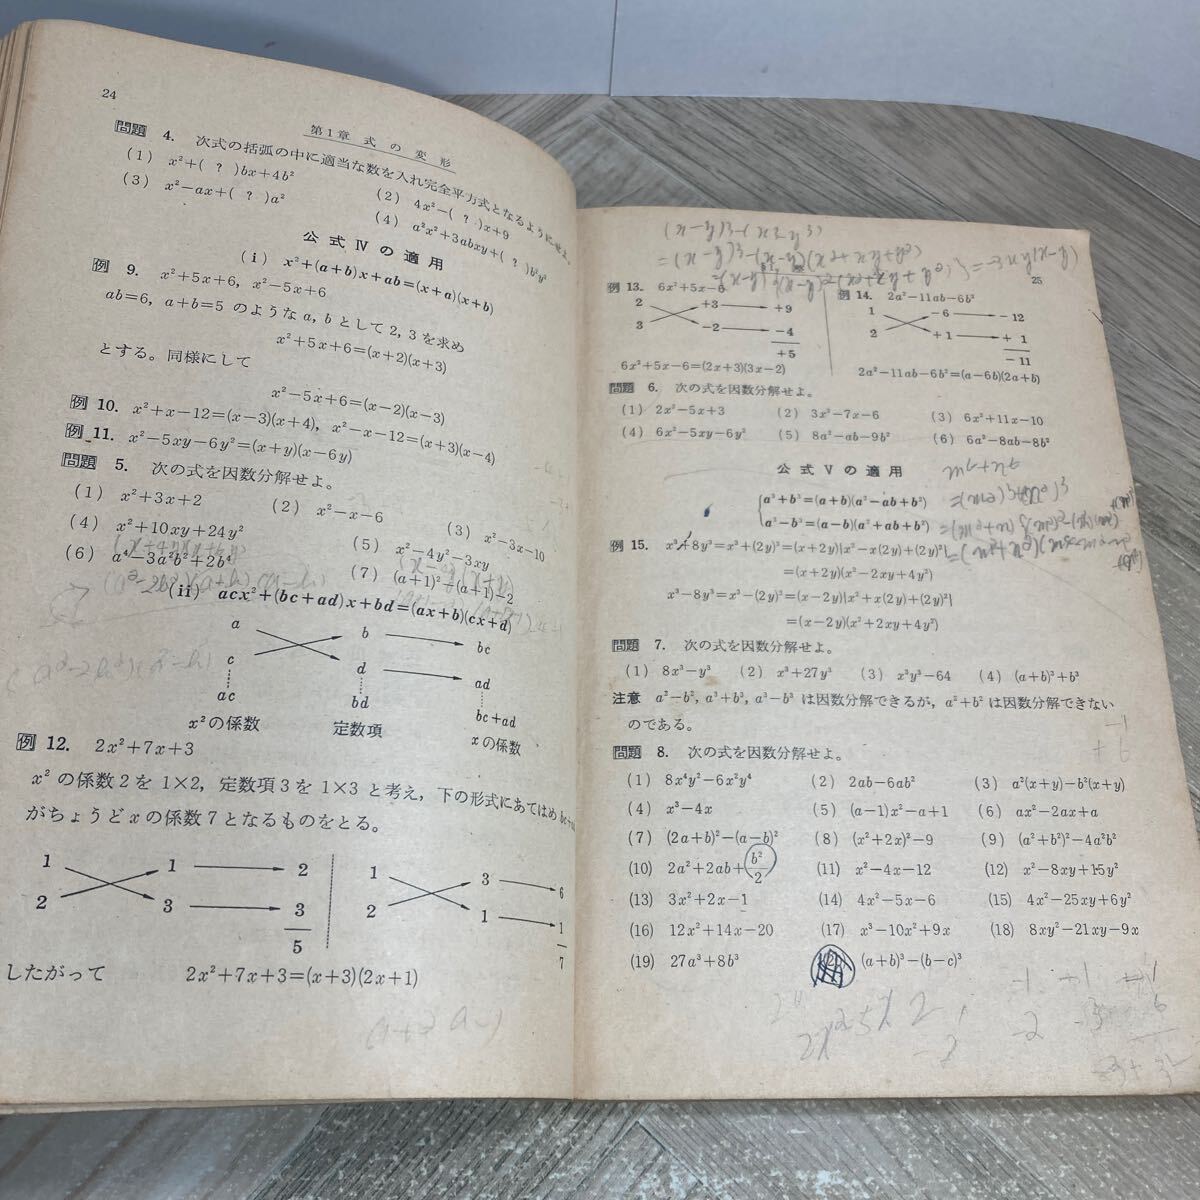 24
第1章 式の変形
問題 4. 次式の括弧の中に適当な数を入れ完全平方式となるようにせよ.
(1) x²+( ? )bx+4b²
(2) 4x²−( ? )x+9
(3) x²−ax+( ? )a²
(4) a²x²+3abxy+( ? )b²y²
公式 Ⅳ の適用
(i) x²+(a+b)x+ab=(x+a)(x+b)
例 9. x²+5x+6, x²−5x+6
ab=6, a+b=5 のような a, b として 2, 3 を求め
x²+5x+6=(x+2)(x+3)
とする。同様にして
x²−5x+6=(x−2)(x−3)
例 10. x²+x−12=(x−3)(x+4), x²−x−12=(x+3)(x−4)
例 11. x²−5xy−6y²=(x+y)(x−6y)
問題 5. 次の式を因数分解せよ。
(1) x²+3x+2 (2) x²−x−6 (3) x²−3x−10
(4) x²+10xy+24y² (5) x²−4y²−3xy
(6) a⁴−3a²b²+2b⁴ (7) (a+1)²−(a+1)−2
(ii) acx²+(bc+ad)x+bd=(ax+b)(cx+d)
a b bc
c d ad
ac bd bc+ad
x²の係数 定数項 xの係数
例 12. 2x²+7x+3
x²の係数2を 1×2, 定数項3を 1×3 と考え, 下の形式にあてはめ
がちょうどxの係数7となるものをとる。
1 1 2
2 3 3
5
1 3 6
2 1 1
7
したがって 2x²+7x+3=(x+3)(2x+1)
(x−y)³−(x³−y³)
25
例 13. 6x²+5x−6
2 +3 +9
3 −2 −4
+5
6x²+5x−6=(2x+3)(3x−2)
例 14. 2a²−11ab−6b²
1 −6 −12
2 +1 + 1
−11
2a²−11ab−6b²=(a−6b)(2a+b)
問題 6. 次の式を因数分解せよ。
(1) 2x²−5x+3 (2) 3x²−7x−6 (3) 6x²+11x−10
(4) 6x²−5xy−6y² (5) 8a²−ab−9b² (6) 6a²−8ab−8b²
公式 Ⅴ の適用
a³+b³=(a+b)(a²−ab+b²)
a³−b³=(a−b)(a²+ab+b²)
例 15. x³+8y³=x³+(2y)³=(x+2y){x²−x(2y)+(2y)²}
=(x+2y)(x²−2xy+4y²)
x³−8y³=x³−(2y)³=(x−2y){x²+x(2y)+(2y)²}
=(x−2y)(x²+2xy+4y²)
問題 7. 次の式を因数分解せよ。
(1) 8x³−y³ (2) x³+27y³ (3) x³y³−64 (4) (a+b)³+b³
注意 a²−b², a³+b³, a³−b³ は因数分解できるが, a²+b² は因数分解できない
のである。
問題 8. 次の式を因数分解せよ。
(1) 8x⁴y²−6x²y⁴ (2) 2ab−6ab² (3) a²(x+y)−b²(x+y)
(4) x³−4x (5) (a−1)x²−a+1 (6) ax²−2ax+a
(7) (2a+b)²−(a−b)² (8) (x²+2x)²−9 (9) (a²+b²)²−4a²b²
(10) 2a²+2ab+b²/2 (11) x²−4x−12 (12) x²−8xy+15y²
(13) 3x²+2x−1 (14) 4x²−5x−6 (15) 4x²−25xy+6y²
(16) 12x²+14x−20 (17) x³−10x²+9x (18) 8xy²−21xy−9x
(19) 27a³+8b³ (a+b)³−(b−c)³